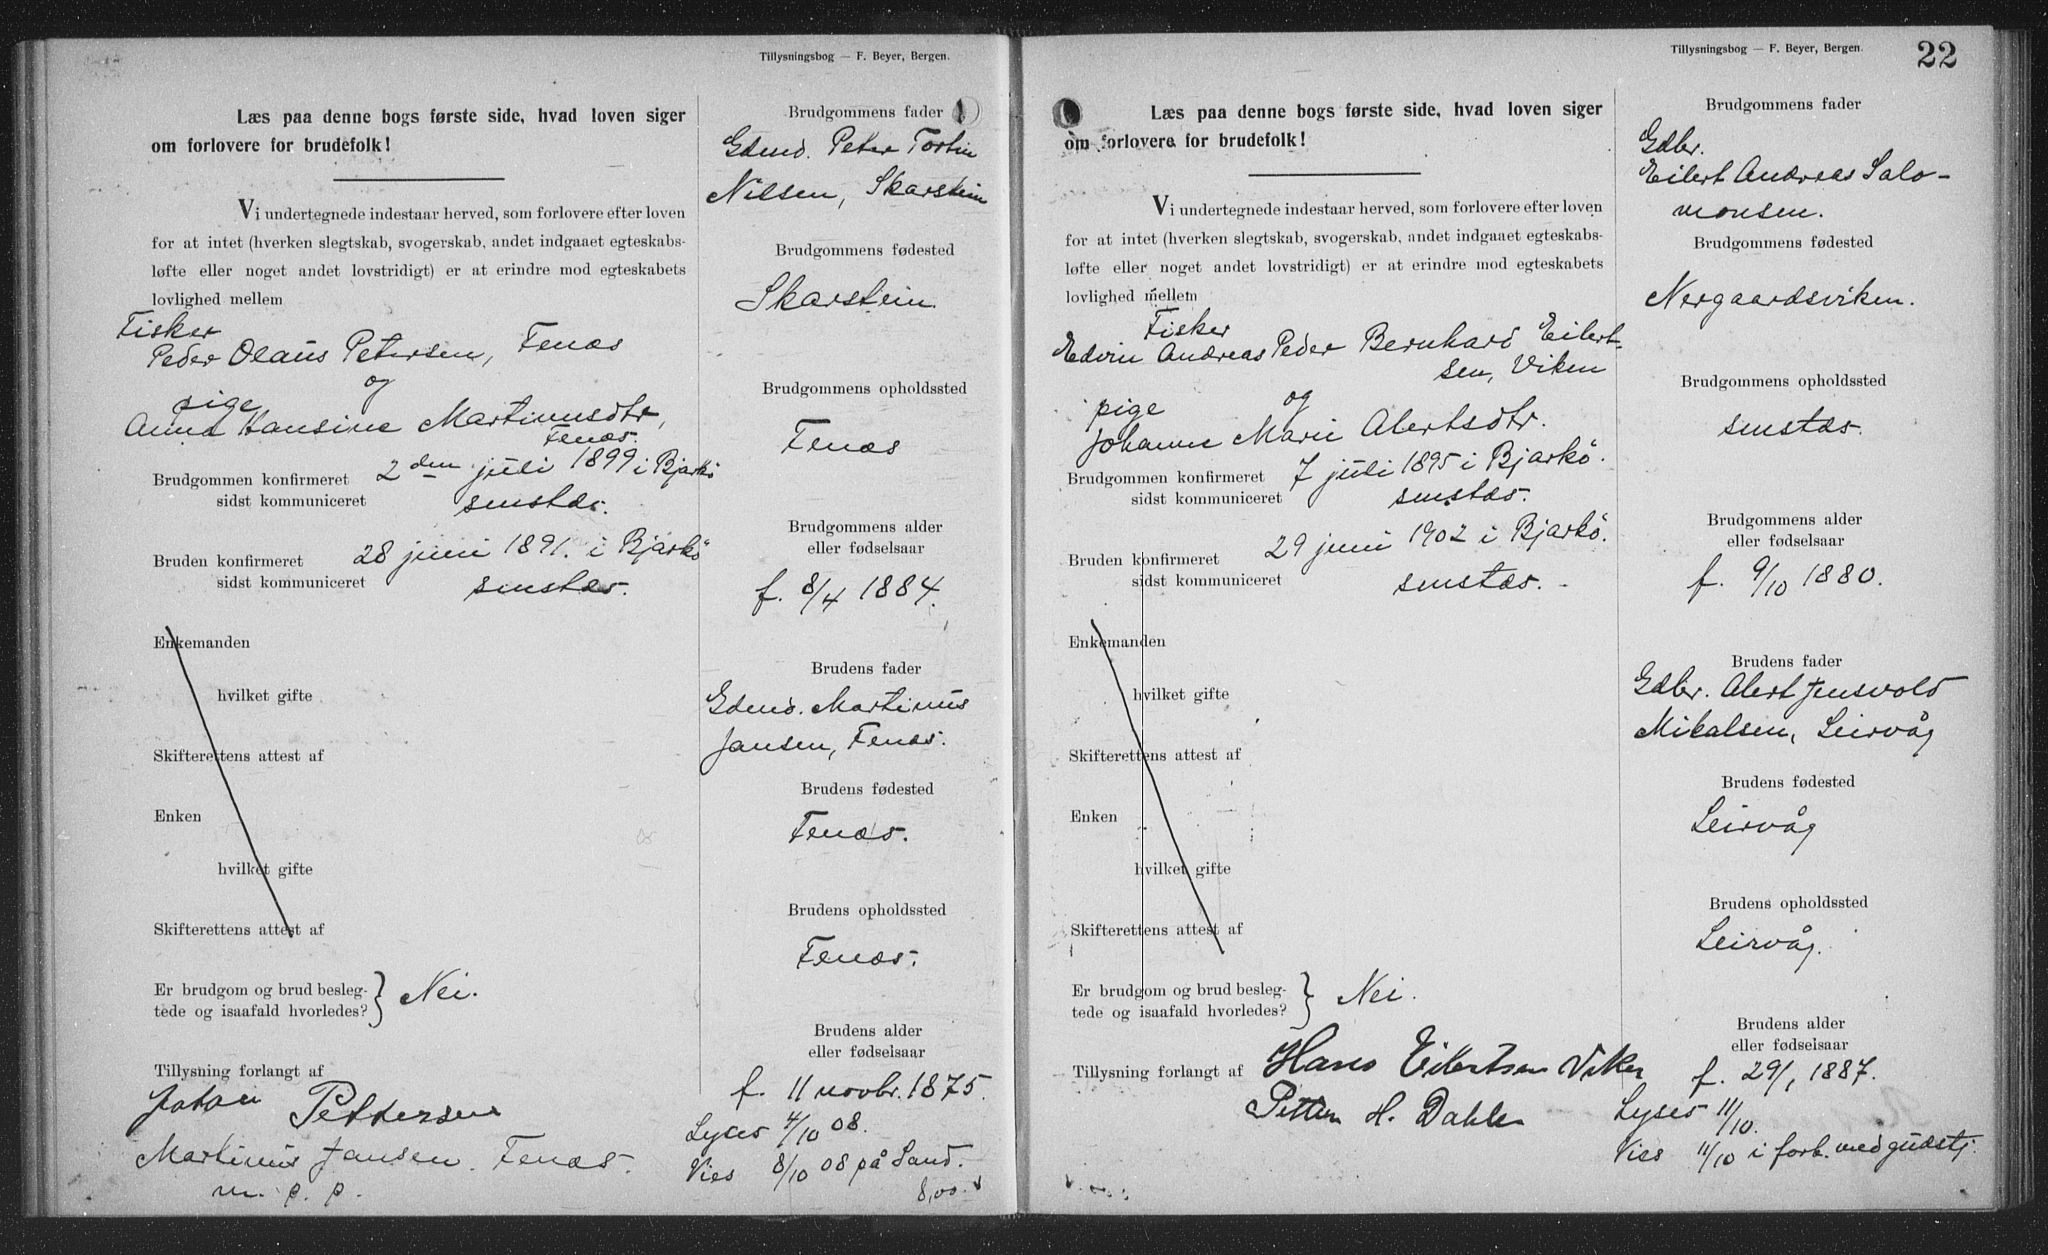 Tillysningsbog — F. Beyer, Bergen.
Læs paa denne bogs første side, hvad loven siger
om forlovere for brudefolk!
Vi undertegnede indestaar herved, som forlovere efter loven
for at intet (hverken slegtskab, svogerskab, andet indgaaet egteskabs-
løfte eller noget andet lovstridigt) er at erindre mod egteskabets
lovlighed mellem
Fisker
Peder Olaus Petersen, Fenæs
og
pige
Anna Hansine Martinusdtr,
Fenæs.
Brudgommen konfirmeret 2den juli 1899 i Bjarkö
sidst kommuniceret smstæs.
Bruden konfirmeret 28 juni 1891. i Bjarkö
sidst kommuniceret smstæs.
Enkemanden
hvilket gifte
Skifterettens attest af
Enken
hvilket gifte
Skifterettens attest af
Er brudgom og brud besleg-
tede og isaafald hvorledes? } Nei.
Tillysning forlangt af
Johan Pettersen
Martinus Jansen. Fenæs.
m. p. p.
Brudgommens fader
Gdmd. Peter
Nilsen, Skarstein
Brudgommens fødested
Skarstein.
Brudgommens opholdssted
Fenæs
Brudgommens alder
eller fødselsaar
f. 8/4 1884.
Brudens fader
Gdmd. Martinus
Jansen, Fenæs.
Brudens fødested
Fenæs.
Brudens opholdssted
Fenæs.
Brudens alder
eller fødselsaar
f. 11 novbr. 1875.
Lyses 4/10 08.
Vies 8/10 08 på Sand.
8,00.
Tillysningsbog — F. Beyer, Bergen.
22
Læs paa denne bogs første side, hvad loven siger
om forlovere for brudefolk!
Vi undertegnede indestaar herved, som forlovere efter loven
for at intet (hverken slegtskab, svogerskab, andet indgaaet egteskabs-
løfte eller noget andet lovstridigt) er at erindre mod egteskabets
lovlighed mellem
Fisker
Edvin Andreas Peder Bernhard Eilert-
sen, Viken
pige og
Johanne Marie Alertsdtr.
Brudgommen konfirmeret 7 juli 1895 i Bjarkö.
sidst kommuniceret smstæs.
Bruden konfirmeret 29 juni 1902 i Bjarkö.
sidst kommuniceret smstæs.
Enkemanden
hvilket gifte
Skifterettens attest af
Enken
hvilket gifte
Skifterettens attest af
Er brudgom og brud besleg-
tede og isaafald hvorledes? } Nei.
Tillysning forlangt af Hans Eilertsen Viken
H. Dahle
Brudgommens fader
Gdbr.
Eilert Andreas Salo-
monsen.
Brudgommens fødested
Nergaardsviken.
Brudgommens opholdssted
smstæs.
Brudgommens alder
eller fødselsaar
f. 9/10 1880.
Brudens fader
Gdbr. Alert Jensvold
Mikalsen, Leirvåg
Brudens fødested
Leirvåg
Brudens opholdssted
Leirvåg.
Brudens alder
eller fødselsaar
f. 29/1 1887.
Lyses 11/10.
Vies 11/10 i forb. med gudstj.